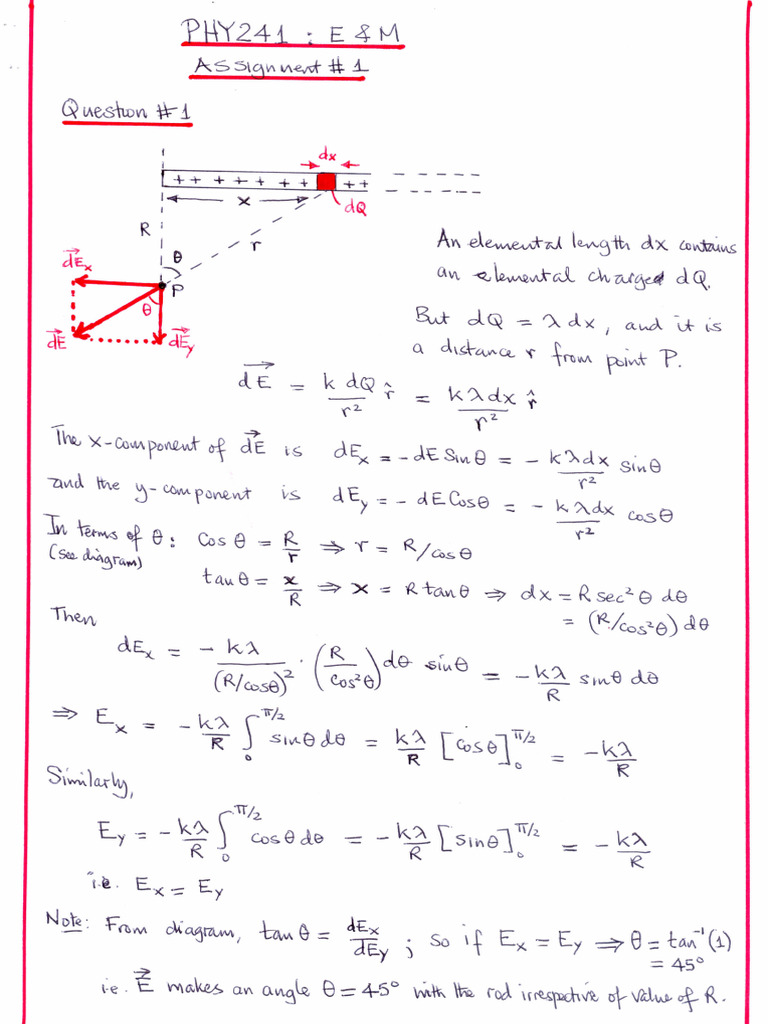 PHY241 : E & M
Assignment # 1
Question # 1
dx
+ + + + + + + + +
x
dQ
R
θ
r
dE⃗x
P
θ
dE⃗
dE⃗y
An elemental length dx contains
an elemental charged dQ.
But dQ = λ dx, and it is
a distance r from point P.
dE⃗ = k dQ/r² r̂ = kλdx/r² r̂
The x-component of dE⃗ is dEx = - dE Sin θ = - kλdx/r² sin θ
and the y-component is dEy = - dE Cos θ = - kλdx/r² cos θ
In terms of θ: Cos θ = R/r ⇒ r = R/cos θ
(see diagram)
tan θ = x/R ⇒ x = R tan θ ⇒ dx = R sec² θ dθ
= (R/cos²θ) dθ
Then
dEx = - kλ/(R/cosθ)² · (R/cos²θ) dθ sin θ = - kλ/R sin θ dθ
⇒ Ex = - kλ/R ∫₀^π/2 sin θ dθ = kλ/R [cos θ]₀^π/2 = - kλ/R
Similarly,
Ey = - kλ/R ∫₀^π/2 cos θ dθ = - kλ/R [sin θ]₀^π/2 = - kλ/R
i.e. Ex = Ey
Note: From diagram, tan θ = dEx/dEy ; so if Ex = Ey ⇒ θ = tan⁻¹(1)
= 45°
i.e. E⃗ makes an angle θ = 45° with the rod irrespective of value of R.